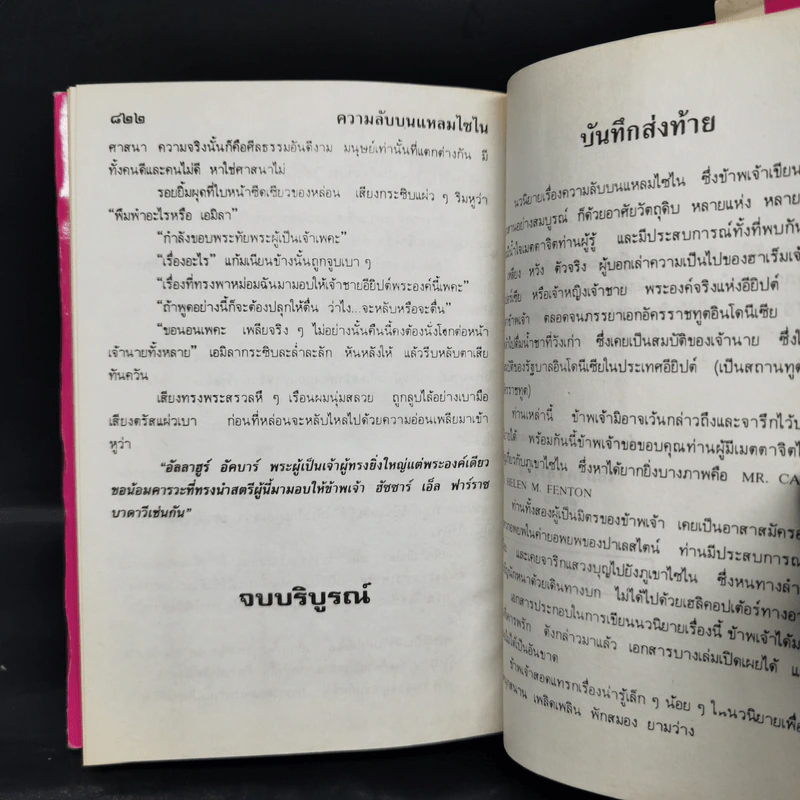 ๘๒๒
ความลับบนแหลมไซไน
ศาสนา ความจริงนั้นก็คือศีลธรรมอันดีงาม มนุษย์เท่านั้นที่แตกต่างกัน มี
ทั้งคนดีและคนไม่ดี หาใช่ศาสนาไม่
รอยยิ้มผุดที่ใบหน้าซีดเซียวของหล่อน เสียงกระซิบแผ่ว ๆ ริมหูว่า
“พึมพำอะไรหรือ เอมิลา”
“กำลังขอบพระทัยพระผู้เป็นเจ้าเพคะ”
“เรื่องอะไร” แก้มเนียนข้างนั้นถูกจูบเบา ๆ
“เรื่องที่ทรงพาหม่อมฉันมามอบให้เจ้าชายอียิปต์พระองค์นี้เพคะ”
“ถ้าพูดอย่างนี้ก็จะต้องปลุกให้ตื่น ว่าไง...จะหลับหรือจะตื่น”
“ขอนอนเพคะ เพลียจริง ๆ ไม่อย่างนั้นคืนนี้คงต้องนั่งโงกต่อหน้า
เจ้านายทั้งหลาย” เอมิลากระซิบละล่ำละลัก หันหลังให้ แล้วรีบหลับตาเสีย
ทันควัน
เสียงทรงพระสรวลหึ ๆ เรือนผมนุ่มสลวย ถูกลูบไล้อย่างเบามือ
เสียงตรัสแผ่วเบา ก่อนที่หล่อนจะหลับไหลไปด้วยความอ่อนเพลียมาเข้า
หูว่า
“อัลลาฮูร์ อัคบาร์ พระผู้เป็นเจ้าผู้ทรงยิ่งใหญ่แต่พระองค์เดียว
ขอน้อมคารวะที่ทรงนำสตรีผู้นี้มามอบให้ข้าพเจ้า ฮัซซาร์ เอ็ล ฟาร์ราช
บาดาวีเช่นกัน”
จบบริบูรณ์
บันทึกส่งท้าย
นวนิยายเรื่องความลับบนแหลมไซไน ซึ่งข้าพเจ้าเขียน
สานอย่างสมบูรณ์ ก็ด้วยอาศัยวัตถุดิบ หลายแห่ง หลาย
มีน้ำใจเมตตาจิตท่านผู้รู้ และมีประสบการณ์ทั้งที่พบกัน
หวัง ตัวจริง ผู้บอกเล่าความเป็นไปของฮาเร็มเจ้า
หรือเจ้าหญิงเจ้าชาย พระองค์จริงแห่งอียิปต์
ข้าพเจ้า ตลอดจนภรรยาเอกอัครราชทูตอินโดนีเซีย
ไปดื่มน้ำชาที่วังเก่า ซึ่งเคยเป็นสมบัติของเจ้านาย ซึ่งใ
บัติของรัฐบาลอินโดนีเซียในประเทศอียิปต์ (เป็นสถานทูต
ราชทูต)
ท่านเหล่านี้ ข้าพเจ้ามิอาจเว้นกล่าวถึงและจารึกไว้บ
ได้ พร้อมกันนี้ข้าพเจ้าขอขอบคุณท่านผู้มีเมตตาจิตใ
เกี่ยวกับภูเขาไซไน ซึ่งหาได้ยากยิ่งบางภาพคือ MR. CA
HELEN M. FENTON
ท่านทั้งสองผู้เป็นมิตรของข้าพเจ้า เคยเป็นอาสาสมัคร
อพยพในค่ายอพยพของปาเลสไตน์ ท่านมีประสบการณ์
และเคยจาริกแสวงบุญไปยังภูเขาไซไน ซึ่งหนทางลำ
หนักหนาด้วยเดินทางบก ไม่ได้ไปด้วยเฮลิคอปเต้อร์ทางอา
เอกสารประกอบในการเขียนนวนิยายเรื่องนี้ ข้าพเจ้าได้ม
ดังกล่าวมาแล้ว เอกสารบางเล่มเปิดเผยได้ แ
ไม่ได้เป็นอันขาด
ข้าพเจ้าสอดแทรกเรื่องน่ารู้เล็ก ๆ น้อย ๆ ในนวนิยายเพื่อ
สนุกสนาน เพลิดเพลิน พักสมอง ยามว่าง